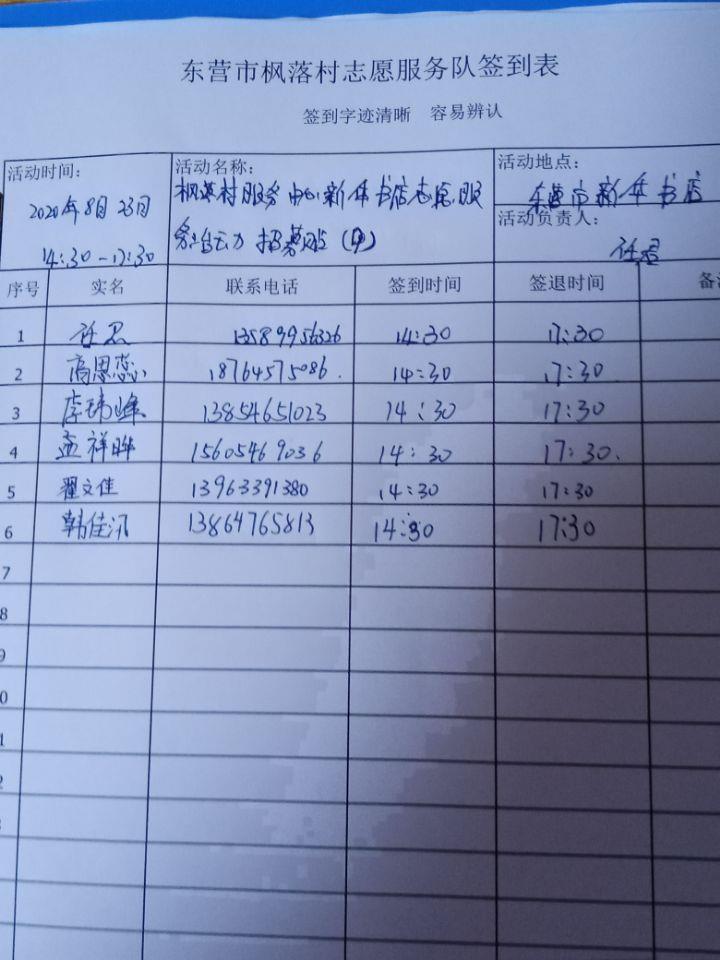 东营市枫落村志愿服务队签到表
签到字迹清晰 容易辨认
活动时间: 活动名称: 活动地点:
2020年8月23日 枫落村服务中心新华书店志愿服 东营市新华书店
14:30-17:30 务活动招募 活动负责人:
序号 实名 联系电话 签到时间 签退时间 备
1 13589956326 14:30 17:30
2 高思蕊 18764575086. 14:30 17:30
3 李玮峰 13854651023 14:30 17:30
4 孟祥晔 15605469036 14:30 17:30.
5 翟文佳 13963391380 14:30 17:30
6 韩佳汛 13864765813 14:30 17:30
7
8
9
0
1
2
3